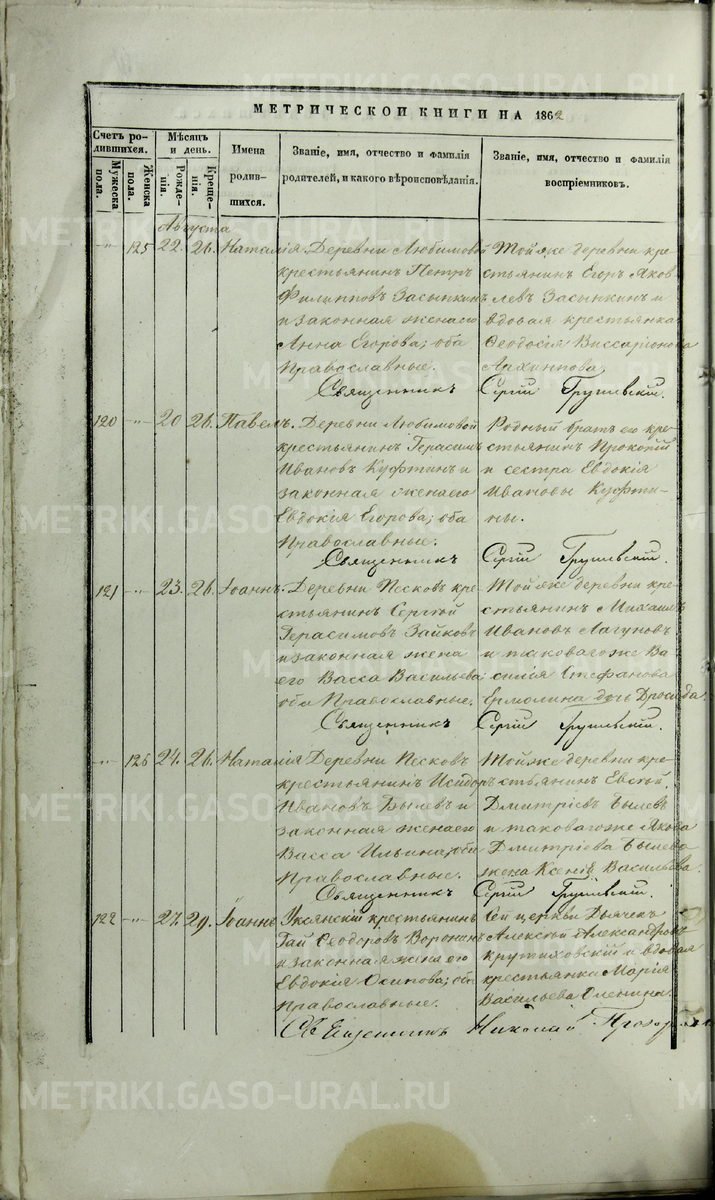 METRIKI.GASO-URAL.RU
МЕТРИЧЕСКОИ КНИГИ НА 1862
Счетъ ро-
дившихся.
Мужеска
пола.
Женска
пола.
Мѣсяцъ
и день.
Рожде-
нія.
Креще-
нія.
Имена
родив-
шихся.
Званіе, имя, отчество и фамилія
родителей, и какого вѣроисповѣданія.
Званіе, имя, отчество и фамилія
воспріемниковъ.
Августа
-"- 125 22. 26. Наталія
Деревни Любимовой
крестьянинъ Петръ
Филипповъ Засыпкинъ
и законная жена его
Анна Егорова; оба
Православные.
Той же деревни кре-
стьянинъ Егоръ Яков-
левъ Засыпкинъ и
вдовая крестьянка
Ѳеодосія Виссаріонова
Архиппова
Священникъ Сергій
120 -"- 20 26. Павелъ.
Деревни Любимовой
крестьянинъ Герасимъ
Ивановъ Куфтинъ и
законная жена его
Евдокія Егорова; оба
Православные.
Родный братъ его кре-
стьянинъ Прокопій
и сестра Евдокія
Ивановы Куфти-
ны.
Священникъ Сергій
121 -"- 23. 26. Іоаннъ.
Деревни Песковъ кре-
стьянинъ Сергей
Герасимовъ Зайковъ
и законная жена
его Васса Васильева;
оба Православные.
Той же деревни кре-
стьянинъ Михаилъ
Ивановъ Лагуновъ
и таковаго же Ва-
силія Стефанова
Ермолина дочь Дросида.
Священникъ Сергій
-"- 126 24. 26. Наталія
Деревни Песковъ
крестьянинъ Исидоръ
Ивановъ Былевъ и
законная жена его
Васса Ильина; оба
Православные.
Той же деревни кре-
стьянинъ Евсей
Дмитріевъ Былевъ
и таковаго же Якова
Дмитріева Былева
жена Ксенія Васильева.
Священникъ Сергій
122 -"- 27. 29. Іоаннъ
Уксянскій крестьянинъ
Гай Ѳеодоровъ Воронинъ
и законная жена его
Евдокія Осипова; оба
Православные.
Сей церкви Дьячекъ
Алексей Александровъ
Крутиховскій и вдовая
крестьянка Марія
Васильева Оленина.
Священникъ Николай